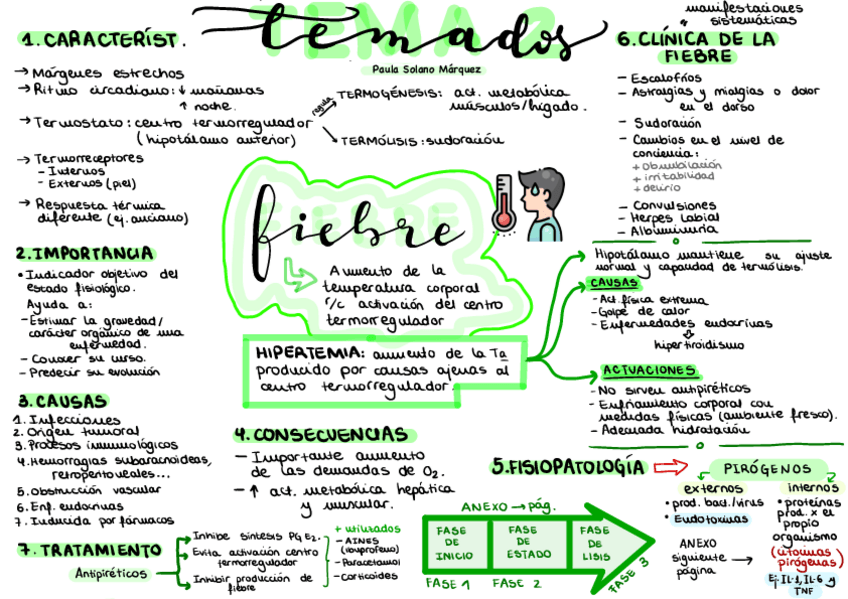 TEMA 2
temados
Paula Solano Márquez
1. CARACTERÍST.
→ Márgenes estrechos
→ Ritmo circadiano: ↓ mañanas
↑ noche.
→ Termostato: centro termorregulador
(hipotálamo anterior)
regula
TERMOGÉNESIS: act. metabólica
músculos/hígado.
TERMÓLISIS: sudoración
→ Termorreceptores
- Internos
- Externos (piel)
→ Respuesta térmica
diferente (ej. anciano)
2. IMPORTANCIA
• Indicador objetivo del
estado fisiológico.
Ayuda a:
- Estimar la gravedad/
carácter orgánico de una
enfermedad.
- Conocer su curso.
- Predecir su evolución
3. CAUSAS
1. Infecciones
2. Origen tumoral
3. Procesos inmunológicos
4. Hemorragias subaracnoideas,
retroperitoneales...
5. Obstrucción vascular
6. Enf. endocrinas
7. Inducida por fármacos
7. TRATAMIENTO
Antipiréticos
Inhibe síntesis PgE2.
Evita activación centro
termorregulador
Inhibir producción de
fiebre
+ utilizados
- AINES
(ibuprofeno)
- Paracetamol
- Corticoides
FIEBRE
fiebre
Aumento de la
temperatura corporal
r/c activación del centro
termorregulador
HIPERTEMIA: aumento de la Tª
producido por causas ajenas al
centro termorregulador.
4. CONSECUENCIAS
- Importante aumento
de las demandas de O2.
- ↑ act. metabólica hepática
y muscular.
manifestaciones
sistemáticas
6. CLÍNICA DE LA
FIEBRE
- Escalofríos
- Astralgias y mialgias o dolor
en el dorso
- Sudoración
- Cambios en el nivel de
conciencia:
+ obnubilación
+ irritabilidad
+ delirio
- Convulsiones
- Herpes labial
- Albuminuria
Hipotálamo mantiene su ajuste
normal y capacidad de termólisis.
CAUSAS
- Act. física extrema
- Golpe de calor
- Enfermedades endocrinas
hipertiroidismo
ACTUACIONES
- No sirven antipiréticos
- Enfriamiento corporal con
medidas físicas (ambiente fresco).
- Adecuada hidratación
5. FISIOPATOLOGÍA
PIRÓGENOS
externos
• prod. bact./virus
• Endotoxinas
internos
• proteínas
prod. x el
propio
organismo
(citocinas
pirógenas)
Ej: IL-1, IL-6 y
TNF
ANEXO
siguiente
página
ANEXO → pág.
FASE
DE
INICIO
FASE
DE
ESTADO
FASE
DE
LISIS
FASE 1
FASE 2
FASE 3